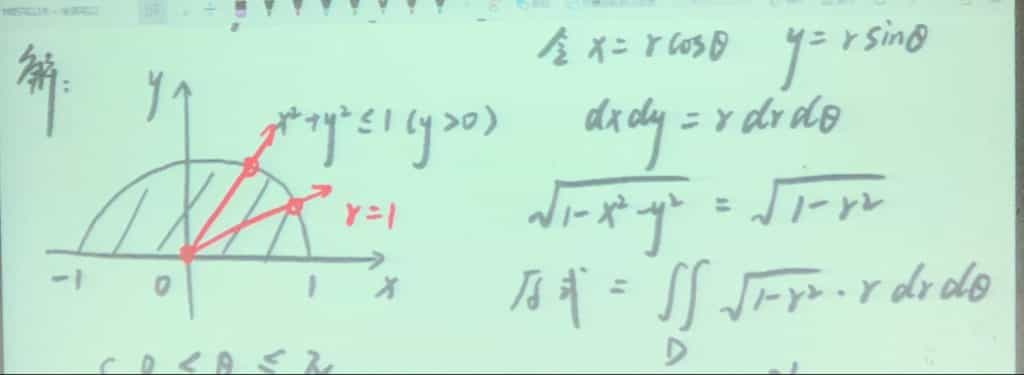 解:
y
x²+y²≤1(y>0)
r=1
-1 0 1 x
令 x=rcosθ y=rsinθ
dxdy=rdrdθ
√(1-x²-y²) = √(1-r²)
原式 = ∬_D √(1-r²)·r dr dθ
0 ≤ θ ≤ π